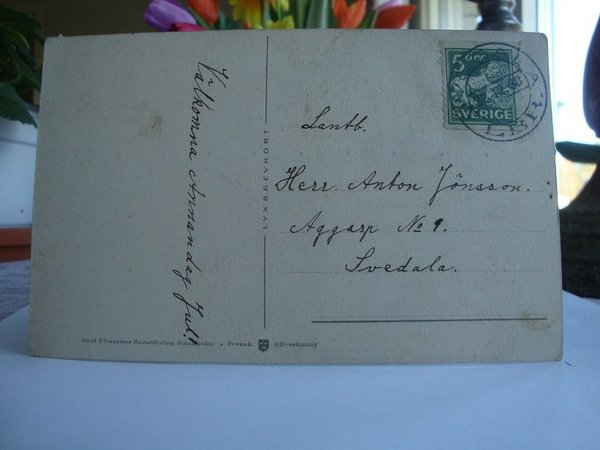 Välkomna Annandag Jul!
LYXBREVKORT
5 ÖRE
SVERIGE
LBR.
Lantb.
Herr. Anton Jönsson.
Aggarp No 9.
Svedala.
Axel Eliassons Konstförlag, Stockholm • Svensk tillverkning